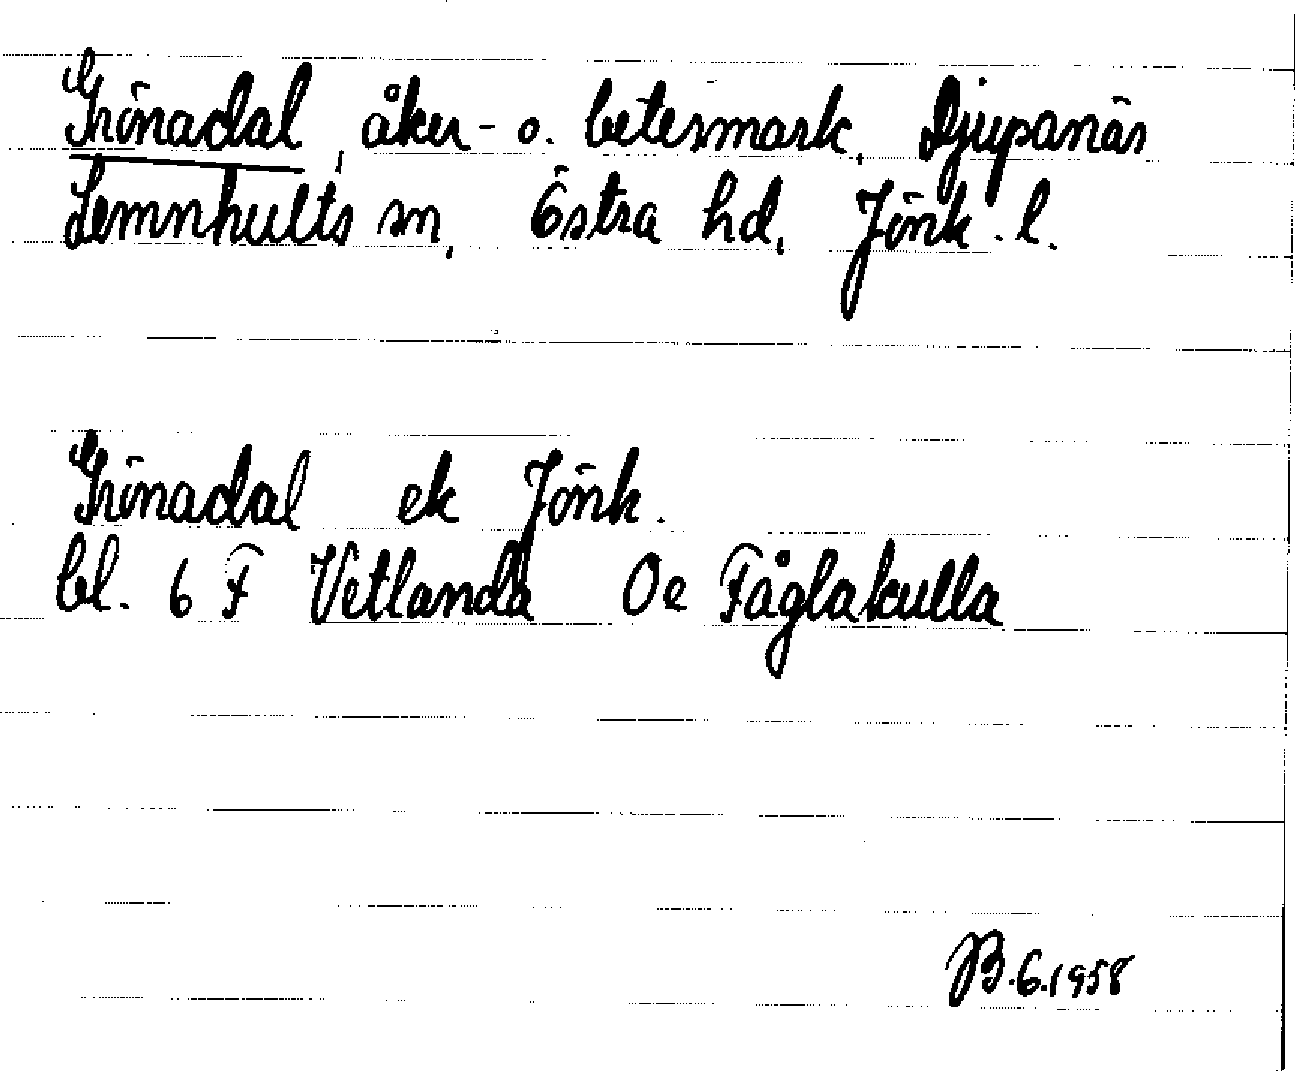 Grönadal, åker- o. betesmark, Djupanäs
Lemnhults sn, Östra hd, Jönk. l.
Grönadal ek Jönk.
bl. 6 F Vetlanda Oe Fåglakulla
B.6.1958